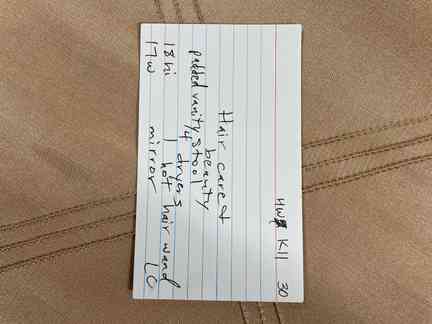 HW K11 30
Hair care &
beauty
padded vanity stool
4 dryers
18 hi 1 hot hair wand
17 w mirror LC